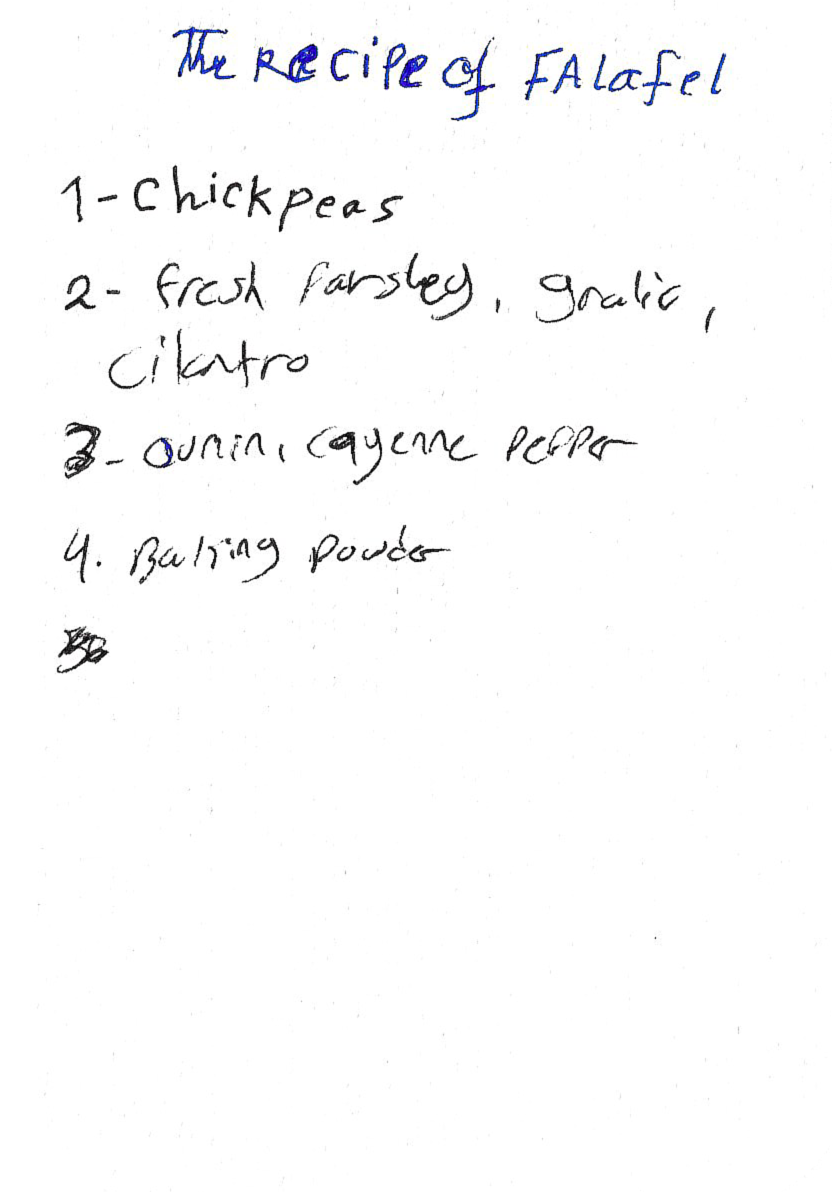 The Recipe of FAlafel
1- Chickpeas
2- fresh Parsley, gralic,
cilantro
3- cumin, cayenne PePPer
4. Baking powder